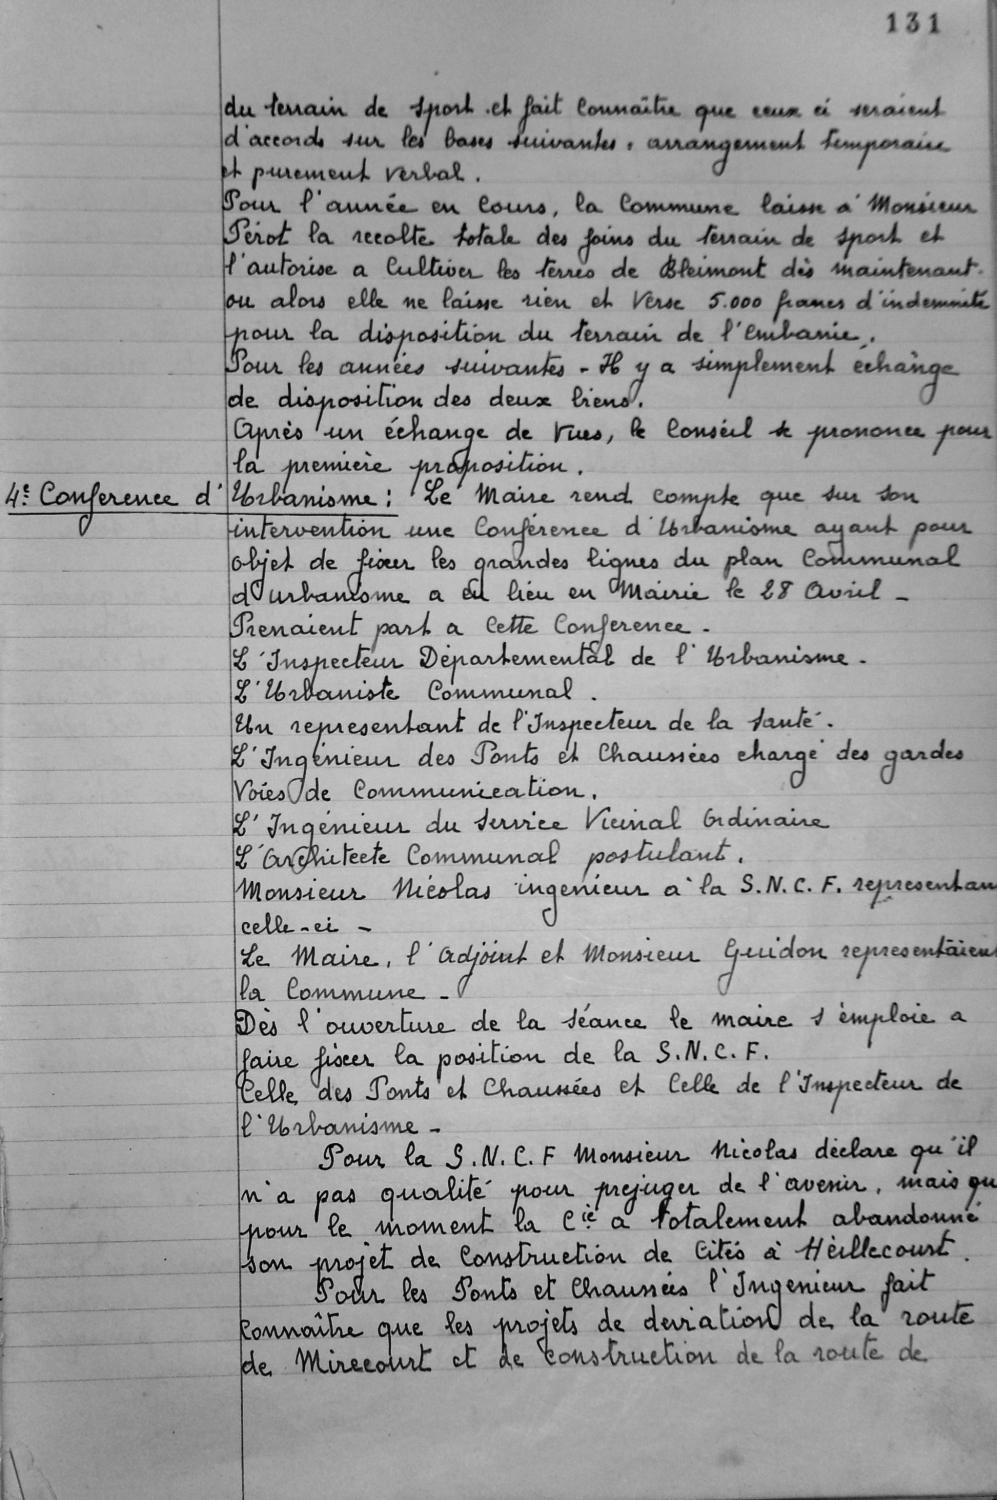 131
du terrain de sport et fait connaître que ceux ci seraient
d'accords sur les bases suivantes, arrangement temporaire
et purement verbal.
Pour l'année en cours, la Commune laisse à Monsieur
Pérot la recolte totale des foins du terrain de sport et
l'autorise a Cultiver les terres de Bleimont dès maintenant.
ou alors elle ne laisse rien et Verse 5.000 francs d'indemnité
pour la disposition du terrain de l'Embanie.
Pour les années suivantes - Il y a simplement échange
de disposition des deux biens.
Après un échange de Vues, le Conseil se prononce pour
la première proposition.
4e Conference d'Urbanisme: Le Maire rend compte que sur son
intervention une Conférence d'Urbanisme ayant pour
objet de fixer les grandes lignes du plan Communal
d'urbanisme a eu lieu en Mairie le 28 Avril -
Prenaient part a Cette Conference -
L'Inspecteur Départemental de l'Urbanisme -
L'Urbaniste Communal.
Un representant de l'Inspecteur de la santé.
L'Ingénieur des Ponts et Chaussées chargé des gardes
Voies de Communication.
L'Ingénieur du service Vicinal Ordinaire
L'Architecte Communal postulant.
Monsieur Nicolas ingenieur à la S.N.C.F. representan
celle-ci -
Le Maire, l'Adjoint et Monsieur Guidon representaient
la Commune -
Dès l'ouverture de la séance le maire s'emploie a
faire fixer la position de la S.N.C.F.
Celle des Ponts et Chaussées et Celle de l'Inspecteur de
l'Urbanisme -
Pour la S.N.C.F Monsieur Nicolas déclare qu'il
n'a pas qualité pour prejuger de l'avenir, mais qu
pour le moment la Cie a totalement abandonné
son projet de Construction de Cités à Héillecourt.
Pour les Ponts et Chaussées l'Ingenieur fait
Connaître que les projets de deviation de la route
de Mirecourt et de construction de la route de